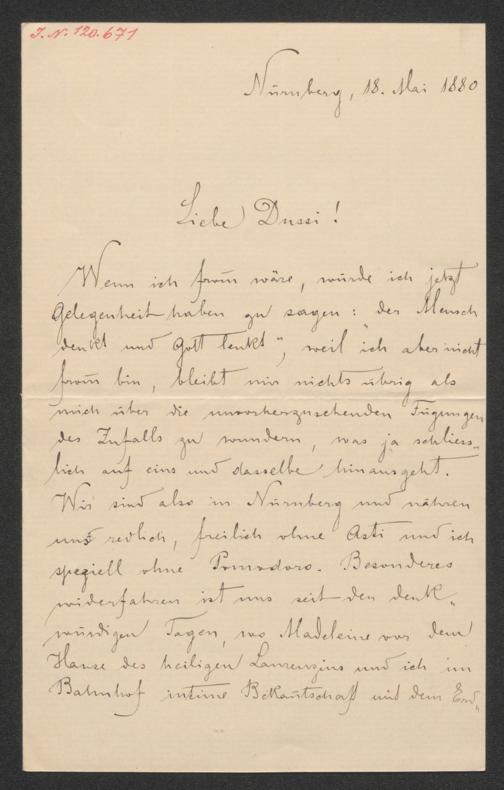 J. N. 120.671
Nürnberg, 18. Mai 1880
Liebe Dussi!
Wenn ich from̄ wäre, würde ich jetzt
Gelegenheit haben zu sagen: "der Mensch
denkt und Gott lenkt", weil ich aber nicht
from̄ bin, bleibt mir nichts übrig als
mich über die unvorherzusehenden Fügungen
des Zufalls zu wundern, was ja schliess-
lich auf eins und dasselbe hinausgeht.
Wir sind also in Nürnberg und nähren
uns redlich, freilich ohne Asti und ich
speziell ohne Pomodoro. Besonderes
widerfahren ist uns seit den denk-
würdigen Tagen, wo Madeleine vor dem
Hause des heiligen Laurenzius und ich im
Bahnhof intime Bekan̄tschaft mit dem Erd-